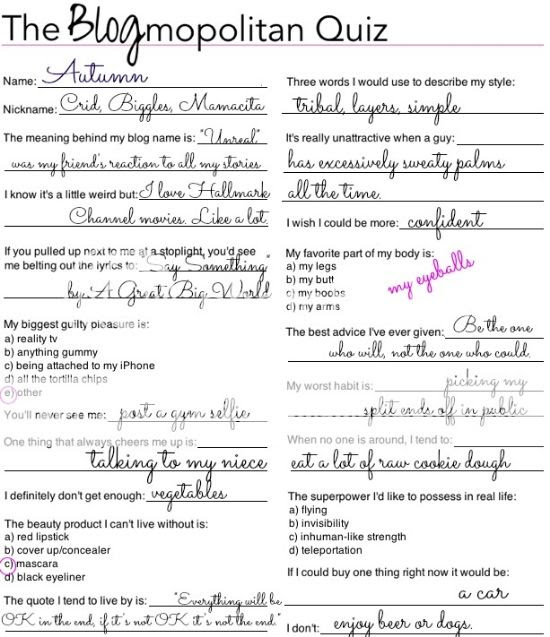 The Blogmopolitan Quiz
Name: Autumn
Nickname: Crid, Biggles, Mamacita
The meaning behind my blog name is: "Unreal"
was my friend's reaction to all my stories
I know it's a little weird but: I love Hallmark
Channel movies. Like a lot.
If you pulled up next to me at a stoplight, you'd see
me belting out the lyrics to: "Say Something"
by: A Great Big World
My biggest guilty pleasure is:
a) reality tv
b) anything gummy
c) being attached to my iPhone
d) all the tortilla chips
e) other
You'll never see me: post a gym selfie
One thing that always cheers me up is:
talking to my niece
I definitely don't get enough: vegetables
The beauty product I can't live without is:
a) red lipstick
b) cover up/concealer
c) mascara
d) black eyeliner
The quote I tend to live by is: "Everything will be
OK in the end, if it's not OK it's not the end."
Three words I would use to describe my style:
tribal, layers, simple
It's really unattractive when a guy:
has excessively sweaty palms
all the time.
I wish I could be more: confident
My favorite part of my body is:
a) my legs
b) my butt
c) my boobs
d) my arms
my eyeballs
The best advice I've ever given: Be the one
who will, not the one who could.
My worst habit is: picking my
split ends off in public
When no one is around, I tend to:
eat a lot of raw cookie dough
The superpower I'd like to possess in real life:
a) flying
b) invisibility
c) inhuman-like strength
d) teleportation
If I could buy one thing right now it would be:
a car
I don't: enjoy beer or dogs.